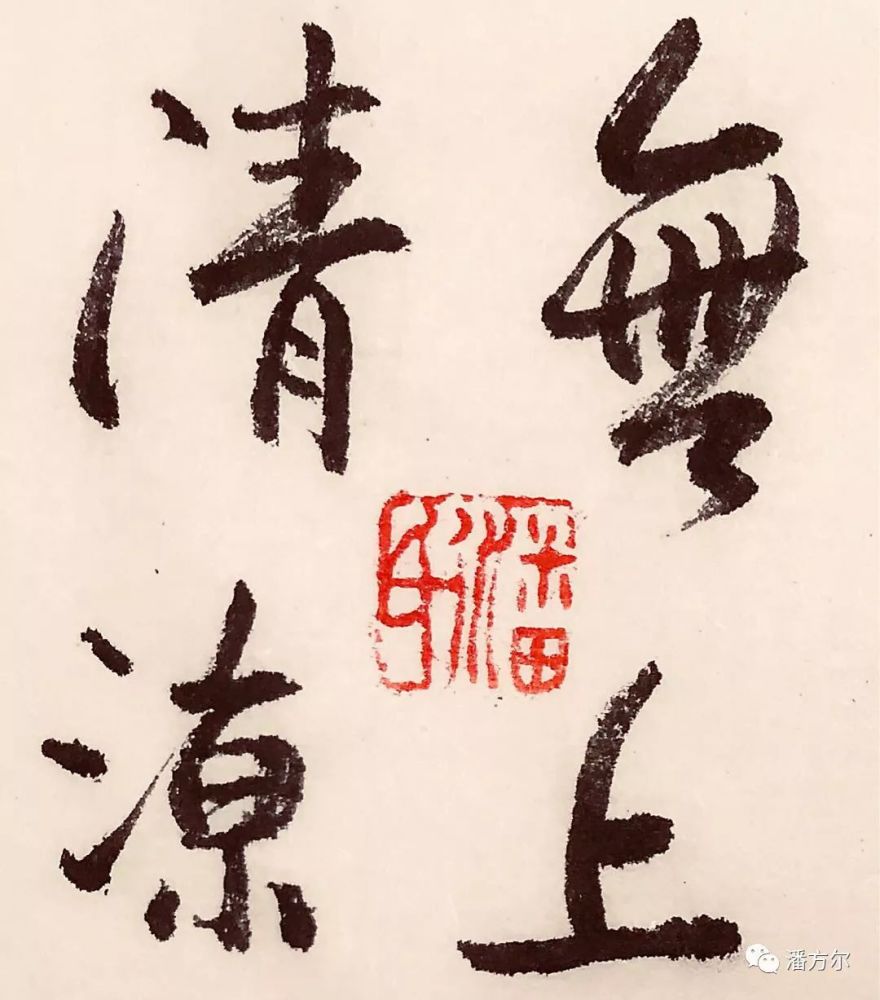 無上
清涼
潘方尔